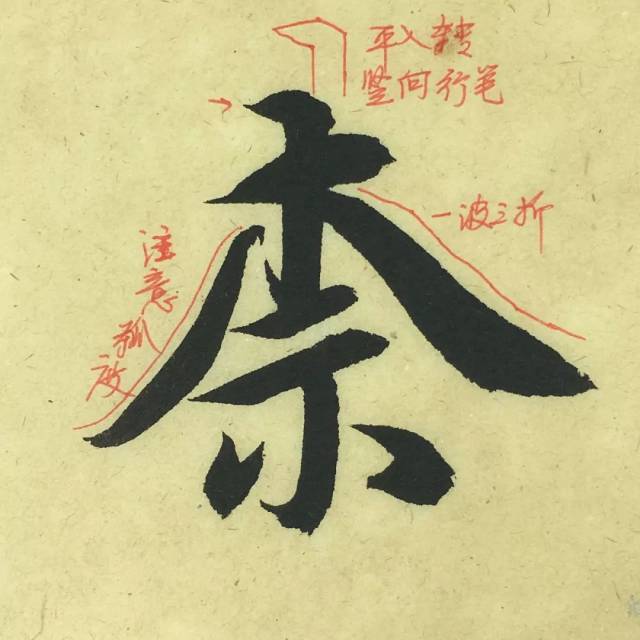 平入转
竖向行笔
一波三折
注意弧度
柰